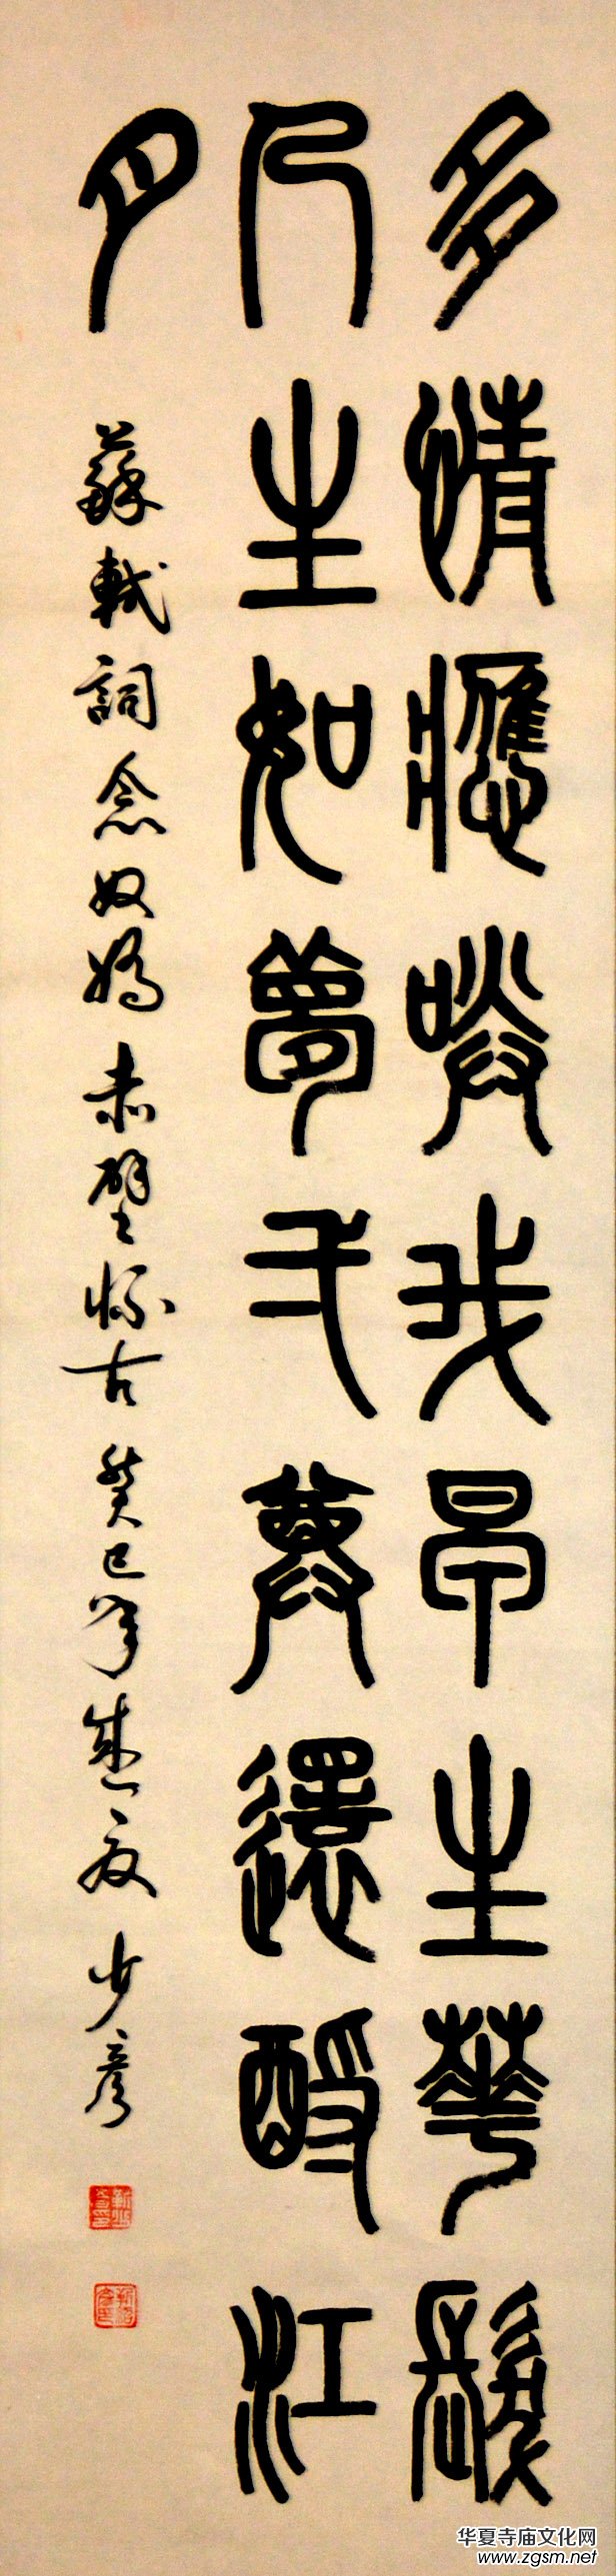 多情應咲我早生華髮
人生如夢弌尊還酹江
月 蘇軾詞念奴嬌 赤壁懷古 癸巳年盛夏 少彥
华夏寺庙文化网
www.zgsm.net